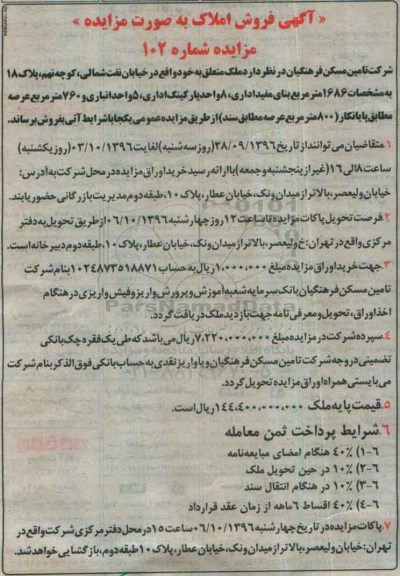 « آگهی فروش املاک به صورت مزایده »
مزایده شماره ۱۰۲
شرکت تامین مسکن فرهنگیان در نظر دارد ملک متعلق به خود واقع در خیابان نفت شمالی، کوچه نهم، پلاک ۱۸
به مشخصات ۱۶۸۶ متر مربع بنای مفید اداری، ۸ واحد پارکینگ اداری، ۵ واحد انباری و ۷۶۰ متر مربع عرصه
مطابق پایانکار (۸۰۰ متر مربع عرصه مطابق سند) از طریق مزایده عمومی یکجا با شرایط آتی بفروش برساند.
۱. متقاضیان می توانند از تاریخ ۲۸/۰۹/۱۳۹۶ (روز سه شنبه) لغایت ۰۳/۱۰/۱۳۹۶ (روز یکشنبه)
ساعت ۸ الی ۱۶ (غیر از پنجشنبه و جمعه) با ارائه رسید خرید اوراق مزایده در محل شرکت به آدرس:
خیابان ولیعصر، بالاتر از میدان ونک، خیابان عطار، پلاک ۱۰، طبقه دوم مدیریت بازرگانی حضور یابند.
۲. فرصت تحویل پاکات مزایده تا ساعت ۱۲ روز چهارشنبه ۰۶/۱۰/۱۳۹۶ از طریق تحویل به دفتر
مرکزی واقع در تهران: خ ولیعصر، بالاتر از میدان ونک، خیابان عطار، پلاک ۱۰، طبقه دوم دبیرخانه است.
۳. جهت خرید اوراق مزایده مبلغ ۱,۰۰۰,۰۰۰ ریال به حساب ۱۰۲۴۸۷۳۵۱۸۸۷۱ بنام شرکت
تامین مسکن فرهنگیان بانک سرمایه شعبه آموزش و پرورش واریز و فیش واریزی در هنگام
اخذ اوراق، تحویل و معرفی نامه جهت بازدید ملک دریافت گردد.
۴. سپرده شرکت در مزایده مبلغ ۷,۲۲۰,۰۰۰,۰۰۰ ریال می باشد که طی یک فقره چک بانکی
تضمینی در وجه شرکت تامین مسکن فرهنگیان و یا واریز نقدی به حساب بانکی فوق الذکر بنام شرکت
می بایستی همراه اوراق مزایده تحویل گردد.
۵. قیمت پایه ملک ۱۴۴,۴۰۰,۰۰۰,۰۰۰ ریال است.
۶. شرایط پرداخت ثمن معامله
۶-۱) ۴۰٪ هنگام امضای مبایعه نامه
۶-۲) ۱۰٪ در حین تحویل ملک
۶-۳) ۱۰٪ در هنگام انتقال سند
۶-۴) ۴۰٪ اقساط ۶ ماهه از زمان عقد قرارداد
۷. پاکات مزایده در تاریخ چهارشنبه ۰۶/۱۰/۱۳۹۶ ساعت ۱۵ در محل دفتر مرکزی شرکت واقع در
تهران: خیابان ولیعصر، بالاتر از میدان ونک، خیابان عطار، پلاک ۱۰ طبقه دوم، بازگشایی خواهد شد.